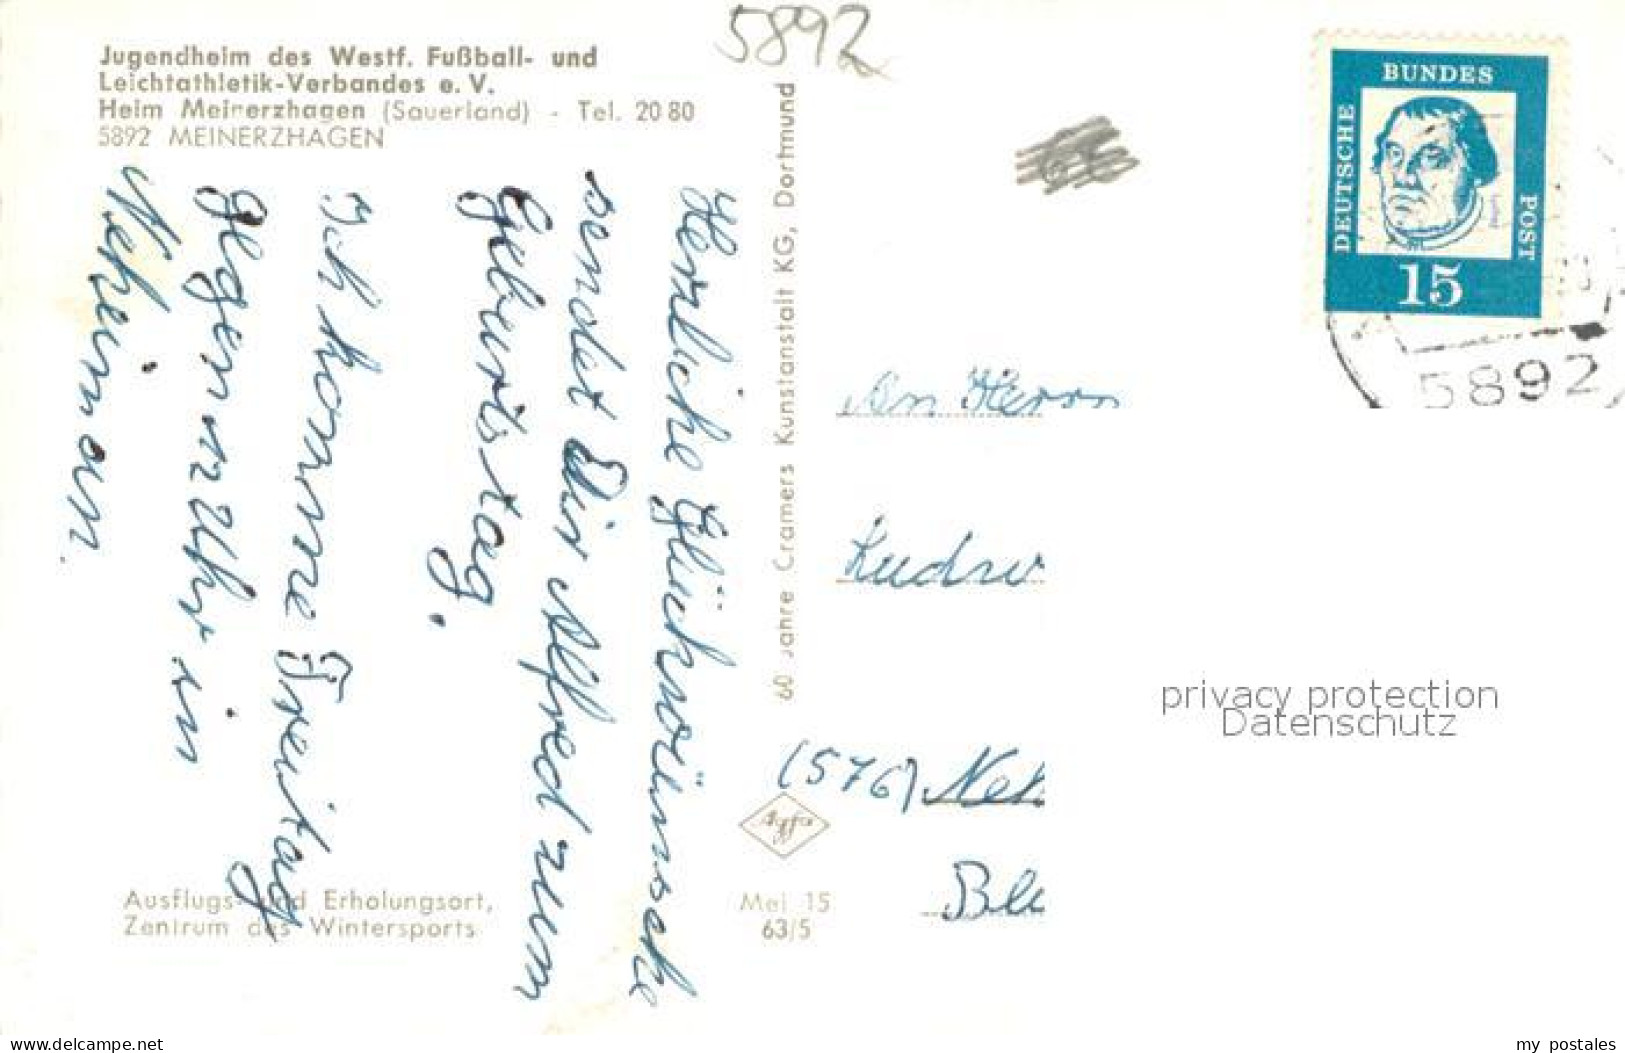 5892
Jugendheim des Westf. Fußball- und
Leichtathletik-Verbandes e. V.
Heim Meinerzhagen (Sauerland) - Tel. 20 80
5892 MEINERZHAGEN
Herzliche Glückwünsche
sendet Dir Alfred zum
Geburtstag.
Ich komme Freitag
gegen 12 Uhr in
Neheim an.
Ausflugs- und Erholungsort,
Zentrum des Wintersports
60 Jahre Cramers Kunstanstalt KG, Dortmund
Agfa
Mei 15
63/5
DEUTSCHE
BUNDES
POST
15
5892
An Herrn
Ludw
(576) Neh
Ble
privacy protection
Datenschutz
www.delcampe.net
my_postales